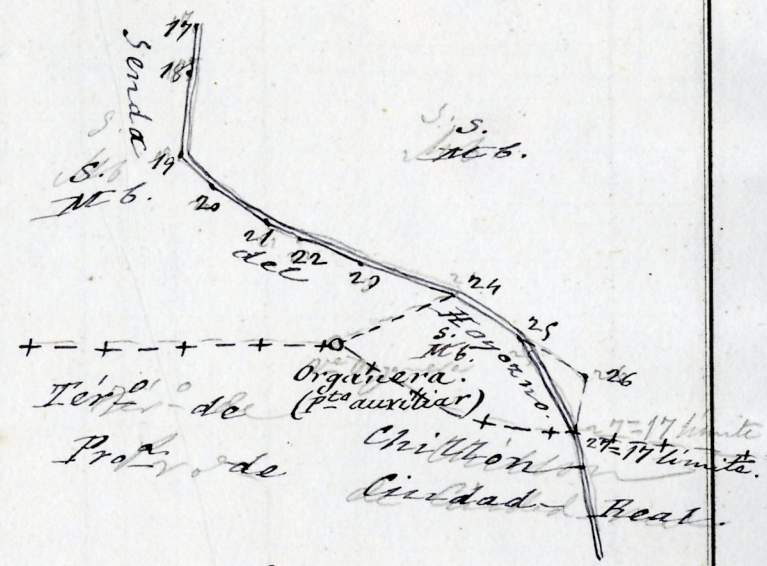 17
18
Senda
19
S.
Mb.
S.
Mb.
20
21
del
22
23
24
25
26
Hoyorno.
S.
Mb.
Organera.
(pto auxiliar)
27=17 límite.
Térmo de Chillón
Proa de Ciudad-Real.